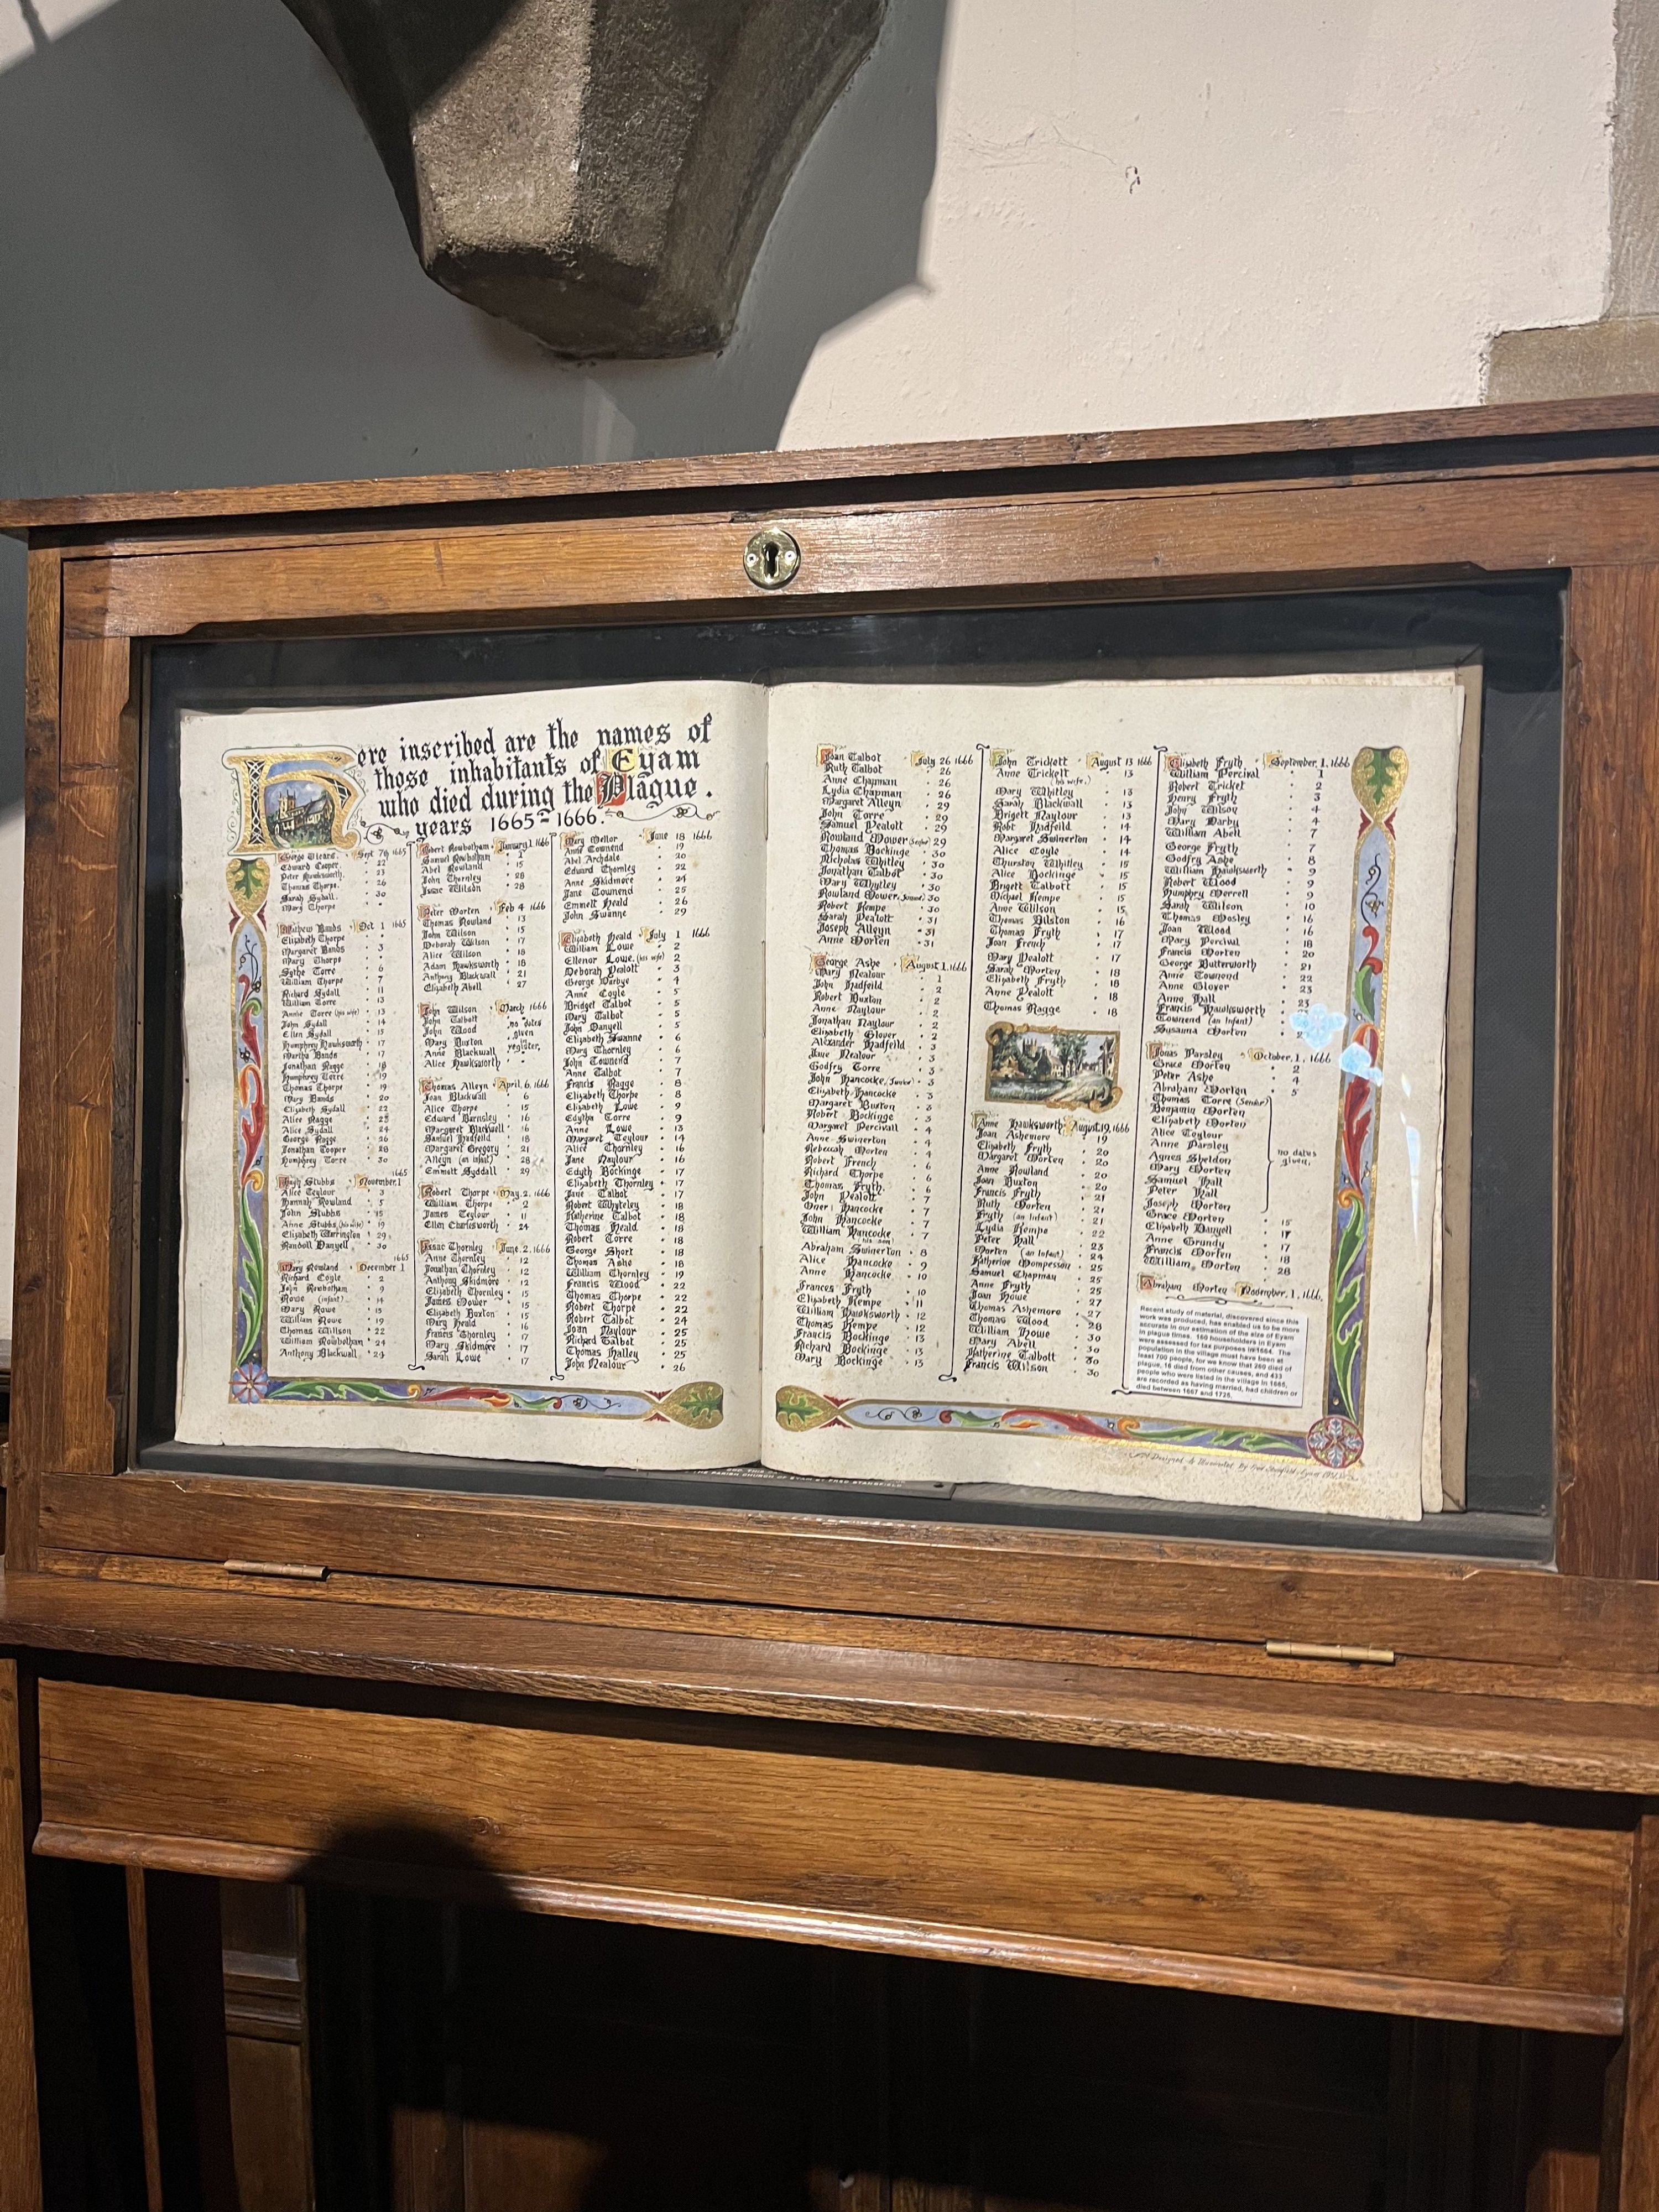 Here inscribed are the names of
those inhabitants of Eyam
who died during the Plague.
years 1665-1666.
George Vicars. Sept 7th 1665
Edward Cooper. 22
Peter Hawksworth. 23
Thomas Thorpe. 26
Sarah Sydall. 30
Mary Thorpe
Mathew Bands Oct 1 1665
Elizabeth Thorpe
Margaret Bands 3
Mary Thorpe
Sythe Torre 6
William Thorpe 7
Richard Sydall 11
William Torre 13
Annie Torre (his wife) 13
John Sydall 14
Ellen Sydall 15
Humphrey Hawksworth 17
Martha Bands 17
Jonathan Ragge 18
Humphrey Torre 19
Thomas Thorpe 19
Mary Bands 20
Elizabeth Sydall 22
Alice Ragge 23
Alice Sydall 24
George Ragge 26
Jonathan Cooper 28
Humphrey Torre 30
1665
Hugh Stubbs November 1
Alice Teylour 3
Hannah Rowland 5
John Stubbs 15
Anne Stubbs (his wife) 19
Elizabeth Warrington 29
Randoll Danyell 30
1665
Mary Rowland December 1
Richard Coyle 2
John Rowbotham 9
Rowe (infant) 14
Mary Rowe 15
William Rowe 19
Thomas Willson 22
William Rowbotham 24
Anthony Blackwall 24
Robert Rowbotham January 1 1666
Samuel Rowbotham 1
Abel Rowland 15
John Thornley 28
Isaac Wilson 28
Peter Morten Feb 4 1666
Thomas Rowland 13
John Wilson 15
Deborah Wilson 17
Alice Wilson 18
Adam Hawksworth 18
Anthony Blackwall 21
Elizabeth Abell 27
John Wilson March 1666
John Talbott
John Wood no dates
Mary Buxton given
Anne Blackwall register.
Alice Hawksworth
Thomas Alleyn April. 6. 1666
Joan Blackwall 6
Alice Thorpe 15
Edward Barnsley 16
Margaret Blackwell 16
Samuel Hadfeild 18
Margaret Gregory 21
Alleyn (an infant) 28
Emmott Syddall 29
Robert Thorpe May. 2. 1666
William Thorpe 2
James Teylor 11
Ellen Charlesworth 24
Isaac Thornley June. 2. 1666
Anne Thornley 12
Jonathan Thornley 12
Anthony Skidmore 12
Elizabeth Thornley 15
James Mower 15
Elizabeth Buxton 15
Mary Heald 16
Francis Thornley 17
Mary Skidmore 17
Sarah Lowe 17
Mary Mellor June 18 1666
Anne Townend 19
Abel Archdale 20
Edward Thornley 22
Anne Skidmore 24
Jane Townend 25
Emmett Heald 26
John Swanne 29
Elizabeth Heald July 1 1666
William Lowe 2
Ellenor Lowe. (his wife) 2
Deborah Pealott 3
George Darbye 4
Anne Coyle 5
Bridget Talbot 5
Mary Talbot 5
John Danyell 5
Elizabeth Swanne 6
Mary Thornley 6
John Townend 7
Anne Talbot 7
Francis Ragge 8
Elizabeth Thorpe 8
Elizabeth Lowe 9
Edytha Torre 9
Anne Lowe 13
Margaret Teylour 14
Alice Thornley 16
Jane Naylour 16
Edyth Bockinge 17
Elizabeth Thornley 17
Jane Talbot 17
Robert Whyteley 18
Katherine Talbot 18
Thomas Heald 18
Robert Torre 18
George Short 18
Thomas Ashe 18
William Thornley 19
Francis Wood 22
Thomas Thorpe 22
Robert Thorpe 22
Robert Talbot 24
Joan Naylour 25
Richard Talbot 25
Thomas Halley 25
John Nealour 26
Joan Talbot July 26 1666
Ruth Talbot 26
Anne Chapman 26
Lydia Chapman 26
Margaret Alleyn 29
John Torre 29
Samuel Pealott 29
Rowland Mower (Senior) 29
Thomas Bockinge 30
Nicholas Whitley 30
Jonathan Talbot 30
Mary Whytley 30
Rowland Mower 30
Robert Kempe 30
Sarah Pealott 31
Joseph Alleyn 31
Anne Morten 31
George Ashe August 1. 1666
Mary Nealour 1
John Hadfeild 2
Robert Buxton 2
Anne Naylour 2
Jonathan Naylour 2
Elizabeth Glover 2
Alexander Hadfeild 3
Jane Nealour 3
Godfry Torre 3
John Hancocke. (Junior) 3
Elizabeth Hancocke 3
Margaret Buxton 3
Robert Bockinge 3
Margaret Percivall
Anne Swinerton 4
Rebeccah Morten 4
Robert French 6
Richard Thorpe 6
Thomas Fryth. 6
John Pealott 7
Oner Hancocke 7
John Hancocke 7
William Hancocke 7
(his son)
Abraham Swinerton 8
Alice Hancocke 9
Anne Hancocke 10
Frances Fryth 10
Elizabeth Kempe 11
William Hawksworth 12
Thomas Kempe 12
Francis Bockinge 13
Richard Bockinge 13
Mary Bockinge 13
John Trickett August 13 1666
Anne Trickett 13
(his wife,)
Mary Whitley 13
Sarah Blackwall 13
Brigett Naylour 13
Robt Hadfeild 14
Margaret Swinerton 14
Alice Coyle 14
Thurstan Whitley 15
Alice Bockinge 15
Brigett Talbott 15
Michael Kempe 15
Anne Wilson 15
Thomas Bilston 16
Thomas Fryth 17
Joan French 17
Mary Pealott 17
Sarah Morten 18
Elizabeth Fryth 18
Anne Pealott 18
Thomas Ragge 18
Anne Hawksworth August. 19. 1666
Joan Ashemore 19
Elizabeth Fryth 20
Margaret Morten 20
Anne Rowland 20
Joan Buxton 20
Francis Fryth 21
Ruth Morten 21
Fryth (an Infant) 21
Lydia Kempe 22
Peter Hall 23
Morten (an Infant) 24
Katherine Mompesson 25
Samuel Chapman 25
Anne Fryth 25
Joan Howe 27
Thomas Ashemore 27
Thomas Wood 28
William Howe 30
Mary Abell 30
Katherine Talbott 30
Francis Wilson 30
Elizabeth Fryth September. 1. 1666
William Percival 1
Robert Tricket 2
Henry Fryth 3
John Wilson 4
Mary Darby 4
William Abell 7
George Fryth 7
Godfry Ashe 8
William Hawksworth 9
Robert Wood 9
Humphry Merrell 9
Sarah Wilson 10
Thomas Mosley 16
Joan Wood 16
Mary Percival 18
Francis Morten 20
George Butterworth 21
Anne Townend 22
Anne Glover 23
Anne Hall 23
Francis Hawksworth
Townend (an Infant)
Susanna Morten
Jonas Parsley October. 1. 1666
Grace Morten 2
Peter Ashe 4
Abraham Morten 5
Thomas Torre (Senior)
Benjamin Morten
Elizabeth Morten
Alice Teylour
Anne Parsley
Agnes Sheldon no dates
Mary Morten given.
Samuel Hall
Peter Hall
Joseph Morten
Grace Morten 15
Elizabeth Danyell 17
Anne Grundy 17
Francis Morten 18
William Morten 28
Abraham Morten November. 1. 1666.
Recent study of material, discovered since this
work was produced, has enabled us to be more
accurate in our estimation of the size of Eyam
in plague times. 160 householders in Eyam
were assessed for tax purposes in 1664. The
population in the village must have been at
least 700 people, for we know that 260 died of
plague, 18 died from other causes, and 433
people who were listed in the village in 1665,
are recorded as having married, had children or
died between 1667 and 1725.
Designed & Illustrated By
THE PARISH CHURCH OF EYAM BY FRED STANSFIELD